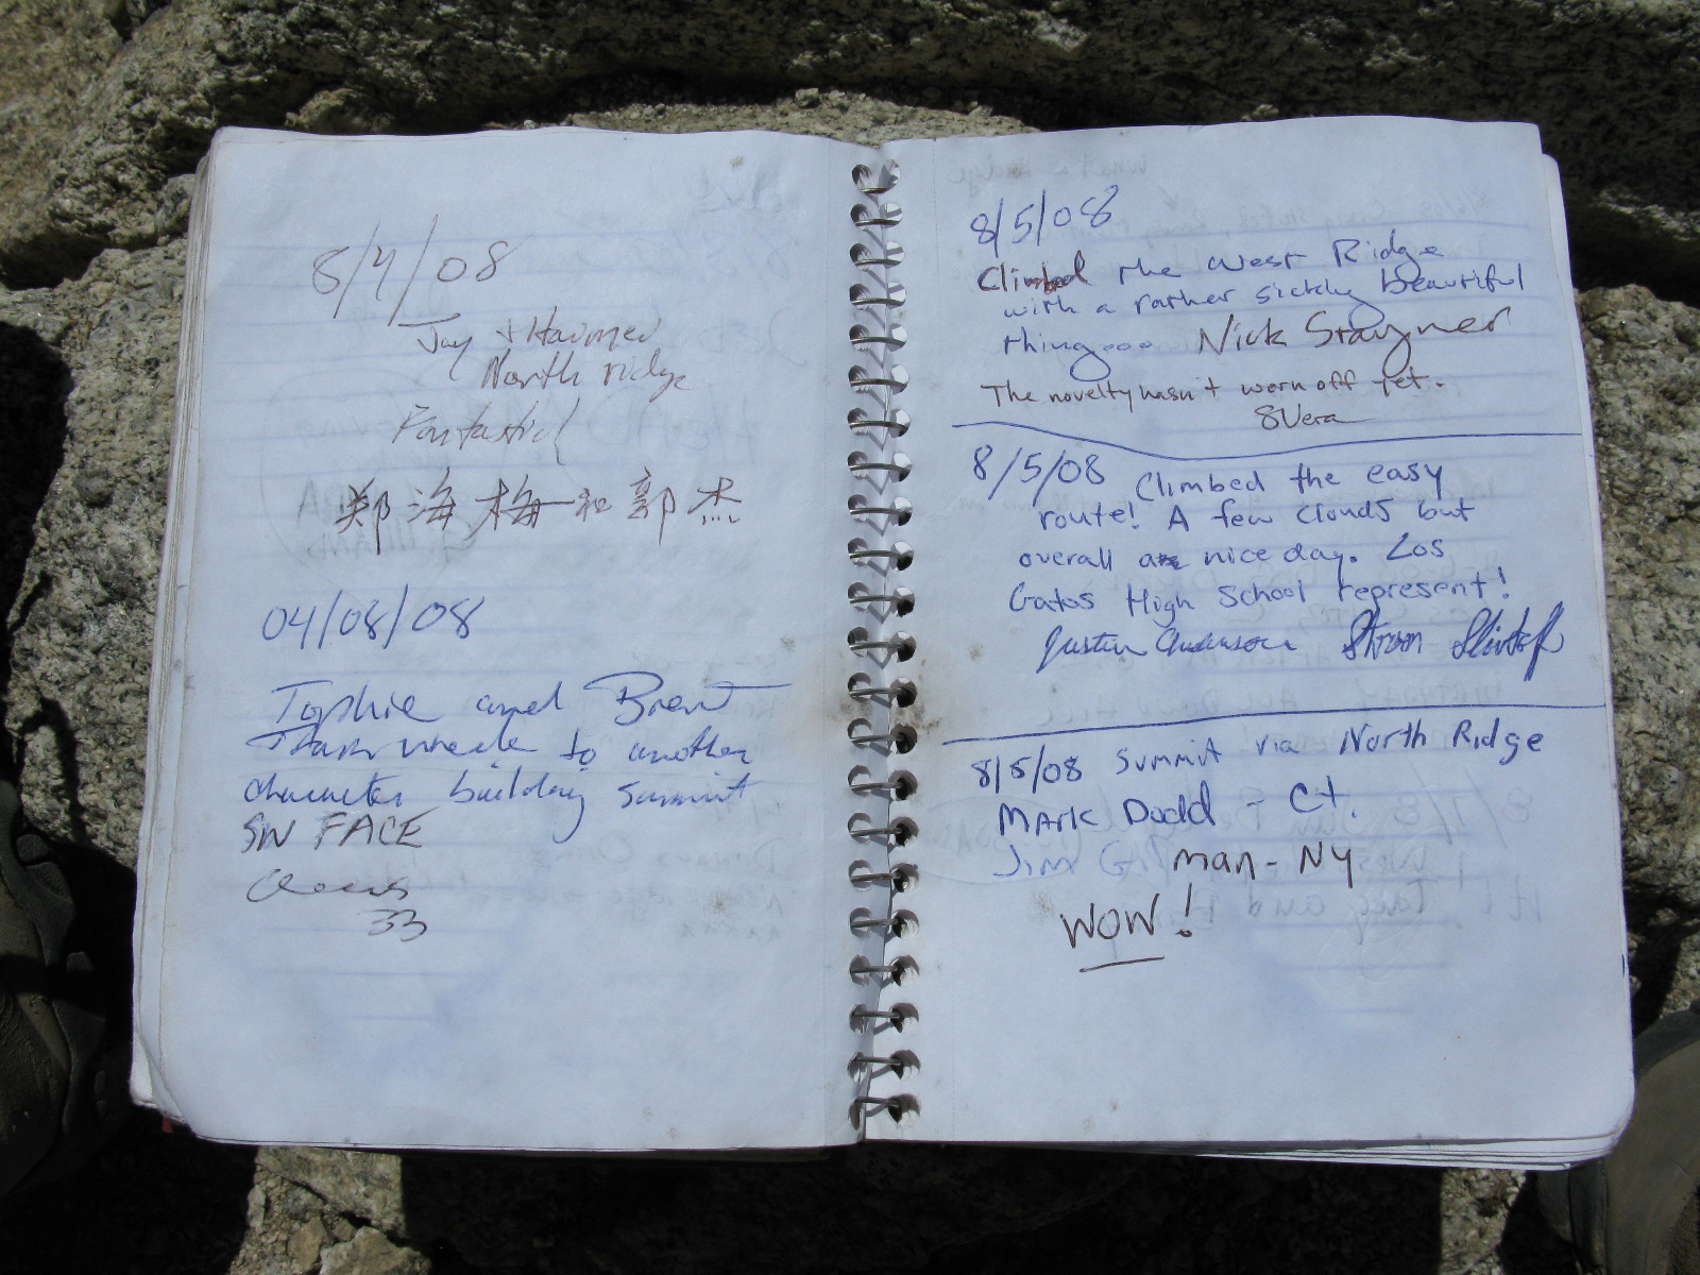 8/4/08
Jay + Haimei
North ridge
Fantastic!
郑海梅和郭杰
04/08/08
Tophie and Brent
to another
character building summit
SW FACE
33
8/5/08
Climbed the West Ridge
with a rather sickly beautiful
thing... Nick Stayner
The novelty hasn't worn off yet.
8Vera
8/5/08 Climbed the easy
route! A few clouds but
overall a nice day. Los
Gatos High School represent!
Justin Anderson
8/5/08 Summit via North Ridge
Mark Dodd - Ct.
Jim Gilman - NY
WOW!